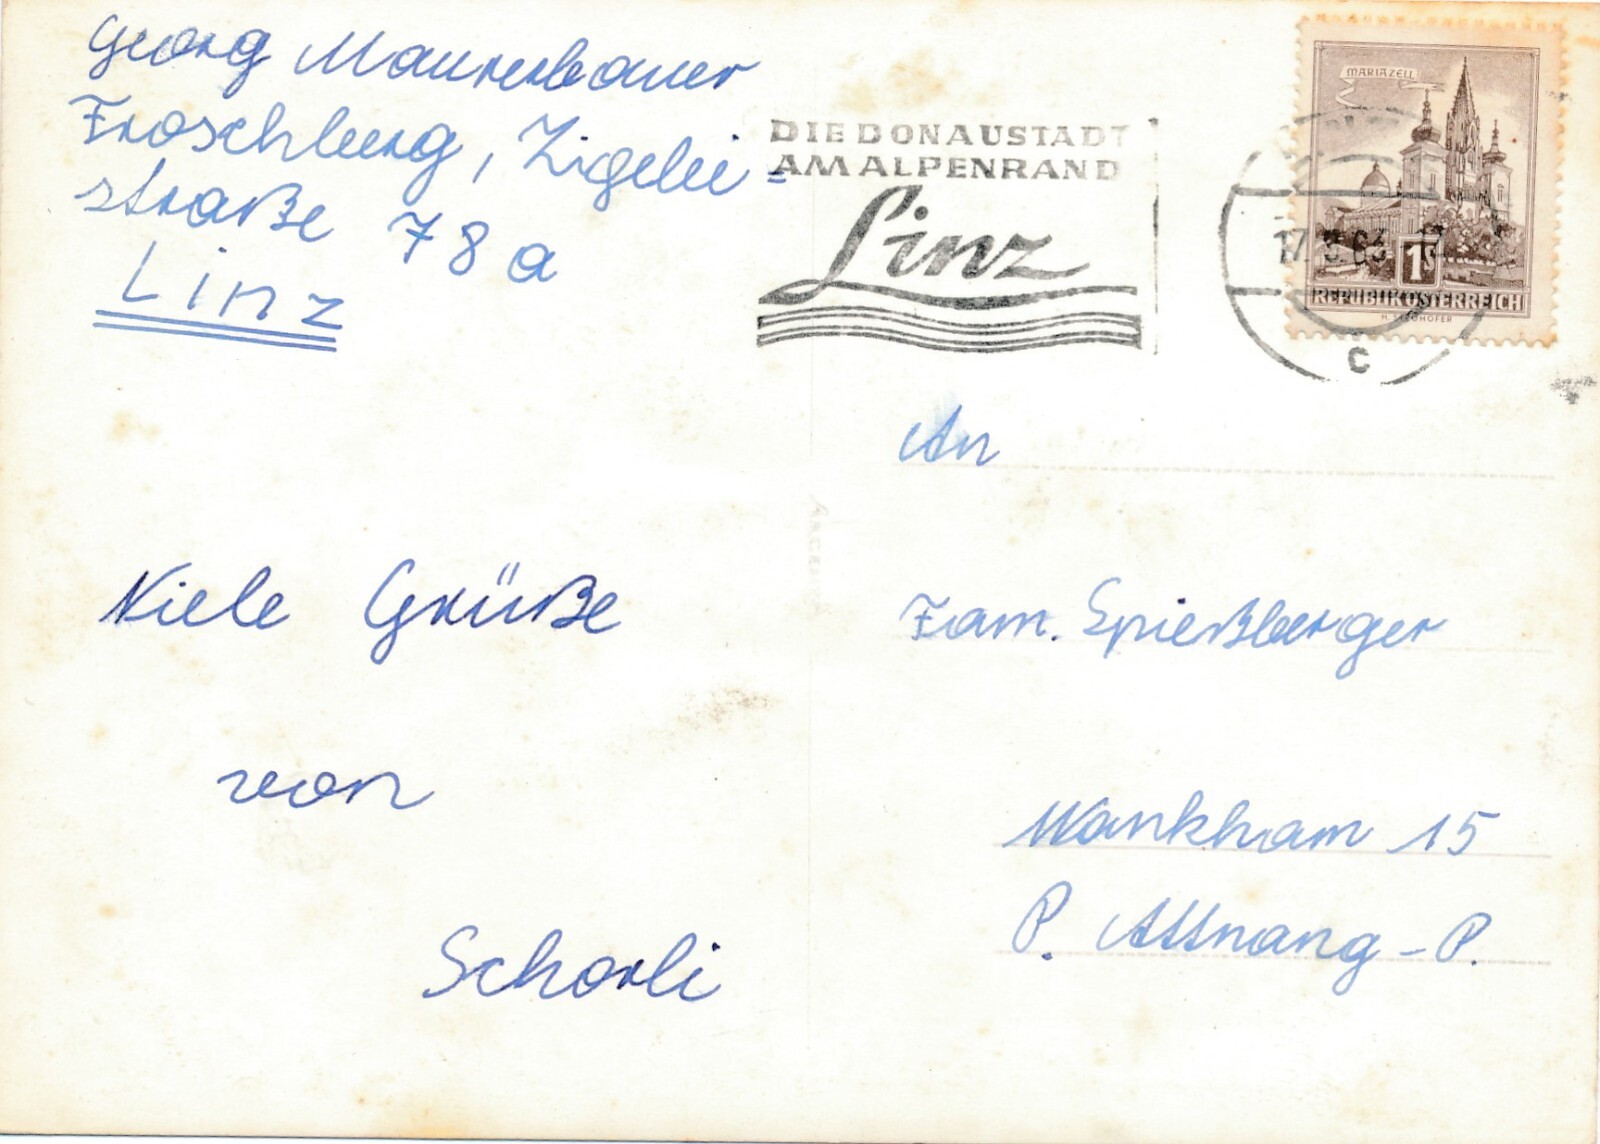 Georg Maurerbauer
Froschberg, Zigelei-
straße 78a
Linz
DIE DONAUSTADT
AM ALPENRAND
Linz
MARIAZELL
1S
REPUBLIK ÖSTERREICH
C
An
Viele Grüße
von
Schorli
Fam. Spießberger
Wankham 15
P. Attnang-P.